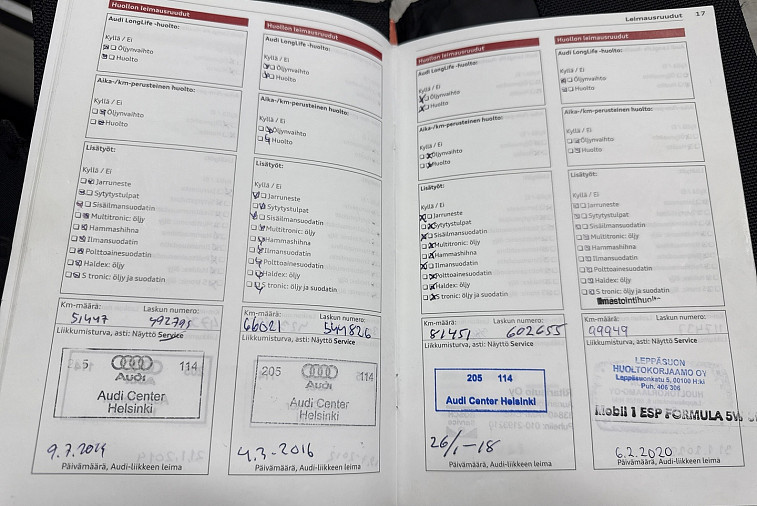 Huollon leimausruudut
Audi LongLife -huolto:
Kyllä / Ei
Öljynvaihto
Huolto
Aika-/km-perusteinen huolto:
Kyllä / Ei
Öljynvaihto
Huolto
Lisätyöt:
Kyllä / Ei
Jarruneste
Sytytystulpat
Sisäilmansuodatin
Multitronic: öljy
Hammashihna
Ilmansuodatin
Polttoainesuodatin
Haldex: öljy
S tronic: öljy ja suodatin
Km-määrä: Laskun numero:
51447 492795
Liikkumisturva, asti: Näyttö Service
5 114
Audi
Audi Center
Helsinki
9.7.2014
Päivämäärä, Audi-liikkeen leima
Huollon leimausruudut
Audi LongLife -huolto:
Kyllä / Ei
Öljynvaihto
Huolto
Aika-/km-perusteinen huolto:
Kyllä / Ei
Öljynvaihto
Huolto
Lisätyöt:
Kyllä / Ei
Jarruneste
Sytytystulpat
Sisäilmansuodatin
Multitronic: öljy
Hammashihna
Ilmansuodatin
Polttoainesuodatin
Haldex: öljy
S tronic: öljy ja suodatin
Km-määrä: Laskun numero:
66021 544826
Liikkumisturva, asti: Näyttö Service
205 114
Audi
Audi Center
Helsinki
4.3-2016
Päivämäärä, Audi-liikkeen leima
Huollon leimausruudut
Audi LongLife -huolto:
Kyllä / Ei
Öljynvaihto
Huolto
Aika-/km-perusteinen huolto:
Kyllä / Ei
Öljynvaihto
Huolto
Lisätyöt:
Kyllä / Ei
Jarruneste
Sytytystulpat
Sisäilmansuodatin
Multitronic: öljy
Hammashihna
Ilmansuodatin
Polttoainesuodatin
Haldex: öljy
S tronic: öljy ja suodatin
Km-määrä: Laskun numero:
81451 602655
Liikkumisturva, asti: Näyttö Service
205 114
Audi Center Helsinki
26/1-18
Päivämäärä, Audi-liikkeen leima
Leimausruudut 17
Huollon leimausruudut
Audi LongLife -huolto:
Kyllä / Ei
Öljynvaihto
Huolto
Aika-/km-perusteinen huolto:
Kyllä / Ei
Öljynvaihto
Huolto
Lisätyöt:
Kyllä / Ei
Jarruneste
Sytytystulpat
Sisäilmansuodatin
Multitronic: öljy
Hammashihna
Ilmansuodatin
Polttoainesuodatin
Haldex: öljy
S tronic: öljy ja suodatin
Km-määrä: Laskun numero:
99949
Liikkumisturva, asti: Näyttö Service
LEPPÄSUON
HUOLTOKORJAAMO OY
Leppäsuonkatu 5, 00100 H:ki
Puh. 406 306
Mobil 1 ESP FORMULA 5W
6.2.2020
Päivämäärä, Audi-liikkeen leima